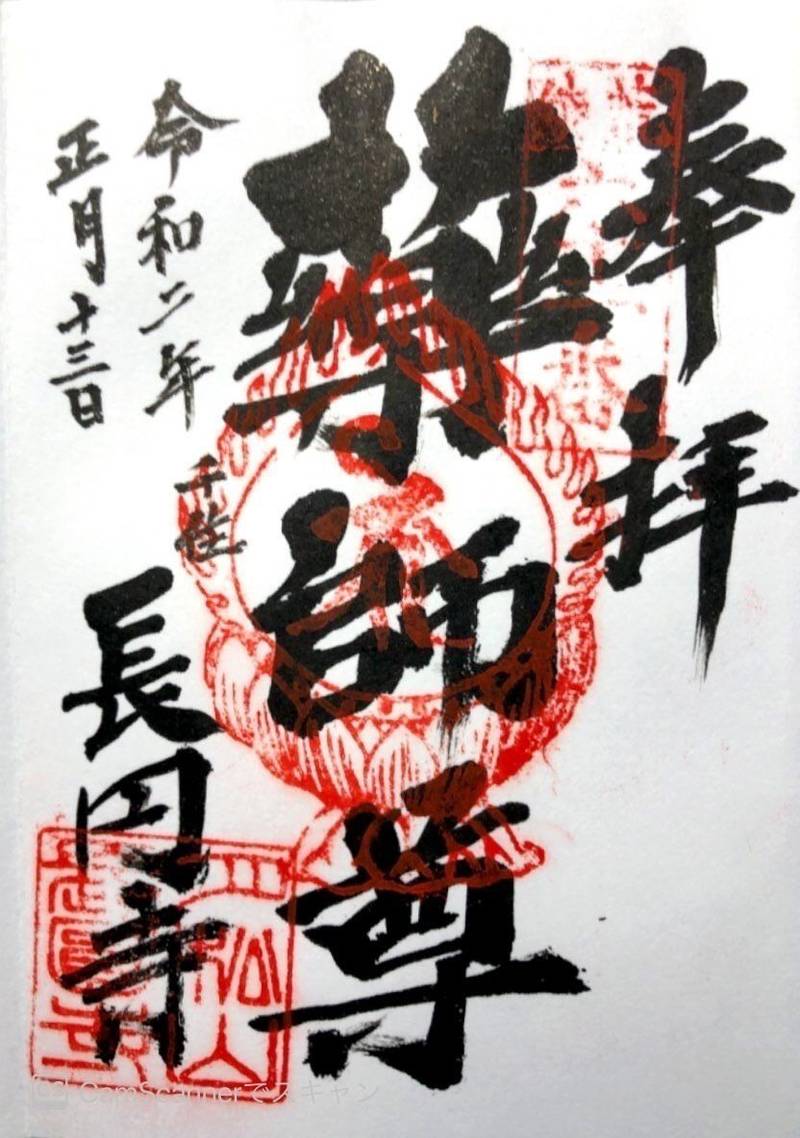 奉拝
薬師尊
令和二年
正月十三日
千住
長円寺
CamScannerでスキャン